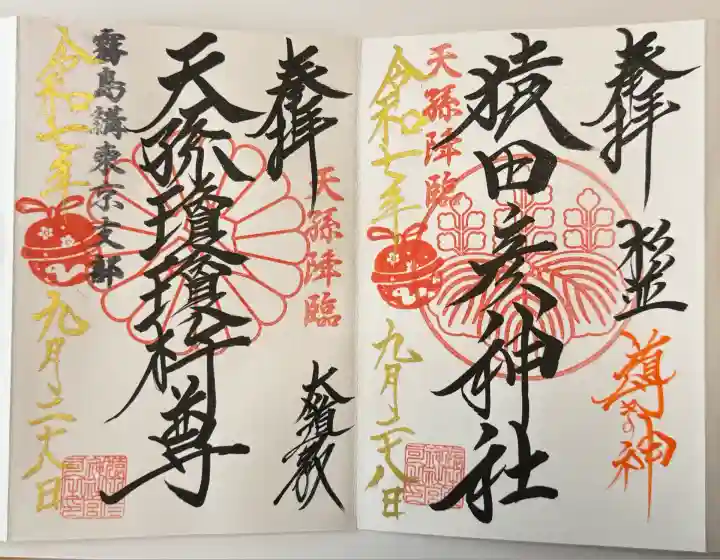 奉拝
松竝
導きの神
猿田彦神社
天孫降臨
令和七年
九月二十八日
奉拝
天孫降臨
大道教
天孫瓊瓊杵尊
霧島講東京支部
令和七年
九月二十八日